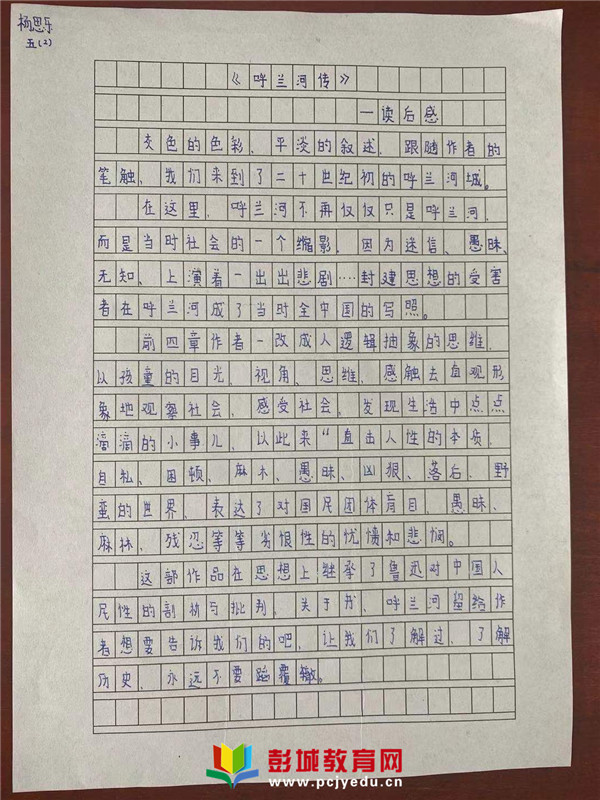 杨思乐
五(2)
《呼兰河传》
—读后感
灰色的色彩、平淡的叙述、跟随作者的
笔触、我们来到了二十世纪初的呼兰河城。
在这里、呼兰河不再仅仅只是呼兰河、
而是当时社会的一个缩影、因为迷信、愚昧、
无知、上演着一出出悲剧……封建思想的受害
者在呼兰河成了当时全中国的写照。
前四章作者一改成人逻辑抽象的思维、
以孩童的目光、视角、思维、感触去直观形
象地观察社会、感受社会、发现生活中点点
滴滴的小事儿、以此来“直击人性的本质、
自私、困顿、麻木、愚昧、凶狠、落后、野
蛮的世界、表达了对国民团体盲目、愚昧、
麻林、残忍等等劣恨性的忧愤和悲悯。
这部作品在思想上继承了鲁迅对中国人
民性的剖析与批判、关于书、呼兰河留给作
者想要告诉我们的吧、让我们了解过、了解
历史、永远不要蹈覆辙。
彭城教育网
www.pcjyedu.cn